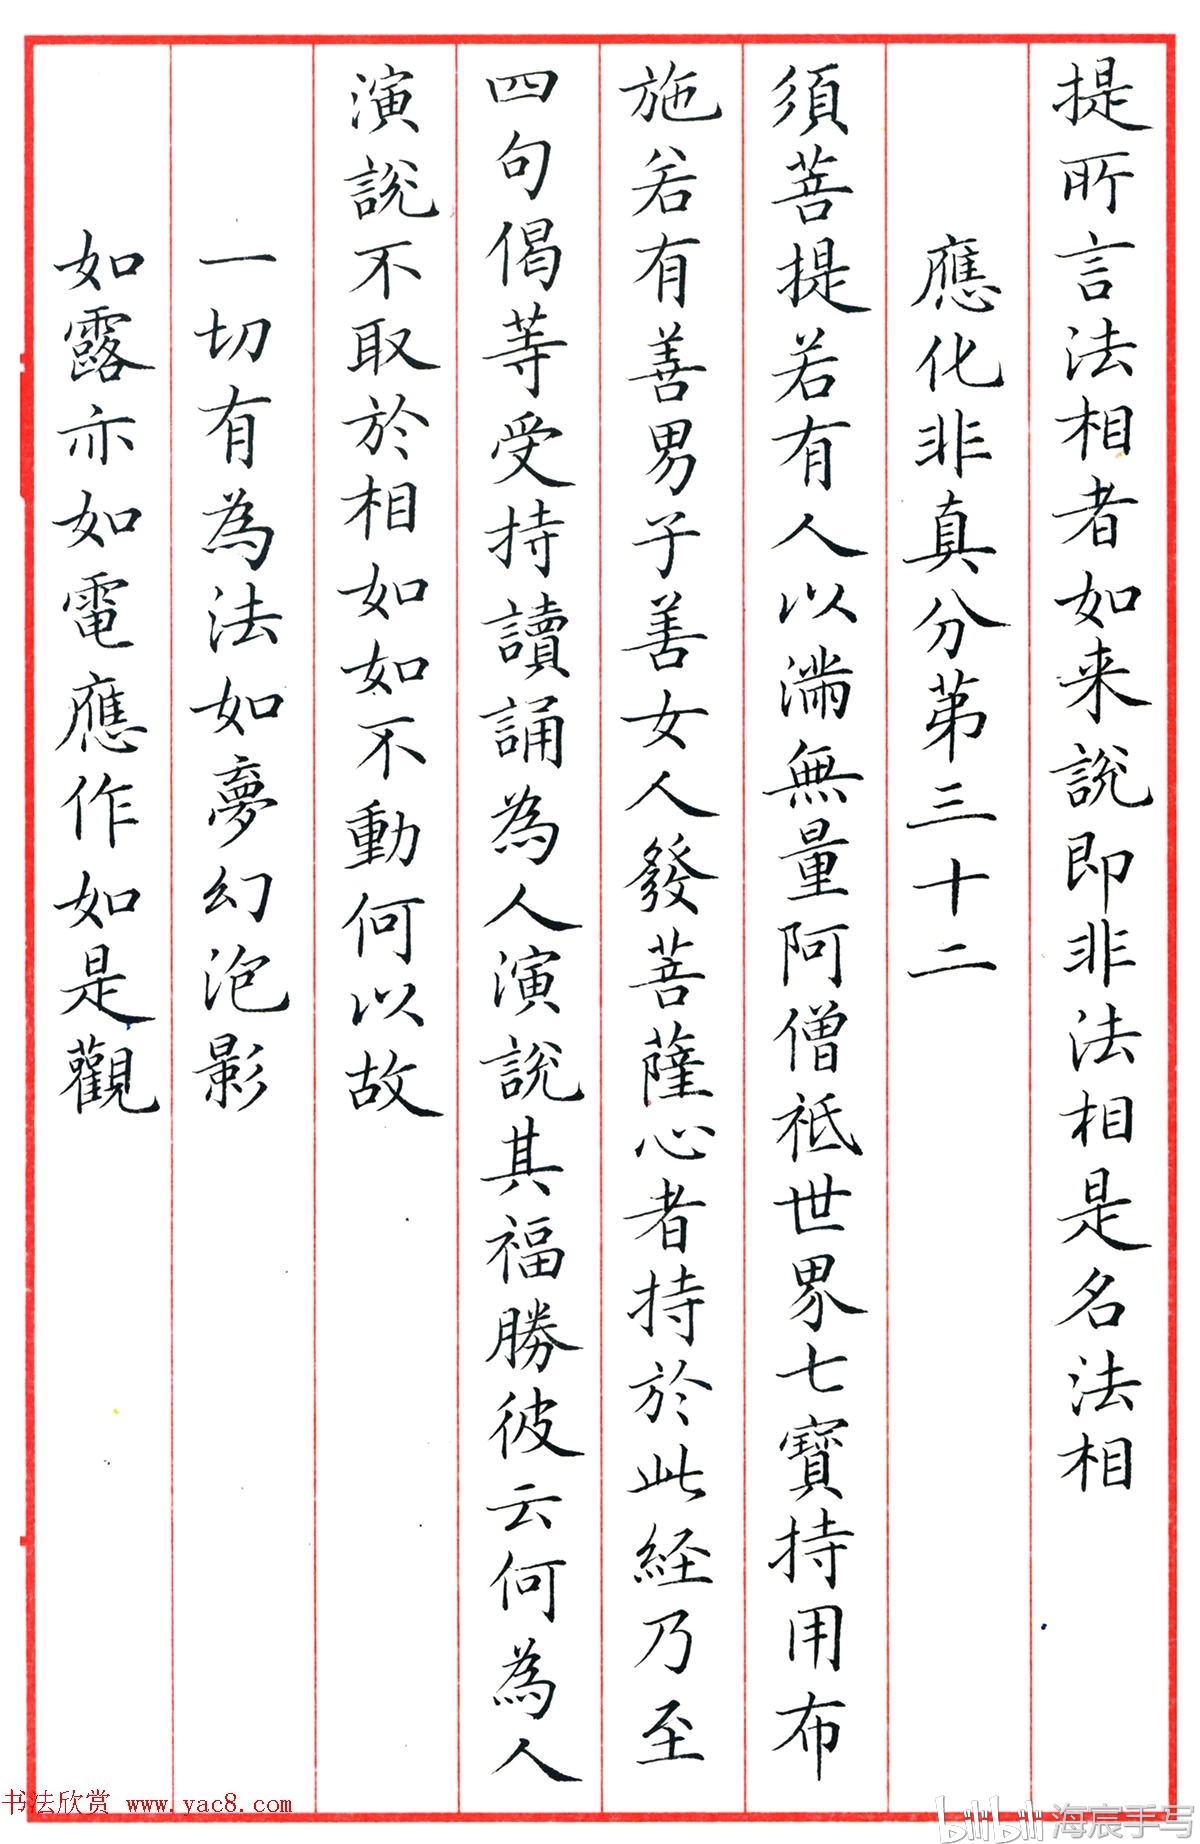 提所言法相者如来說即非法相是名法相
應化非真分第三十二
須菩提若有人以滿無量阿僧祇世界七寶持用布
施若有善男子善女人發菩薩心者持於此經乃至
四句偈等受持讀誦為人演說其福勝彼云何為人
演說不取於相如如不動何以故
一切有為法如夢幻泡影
如露亦如電應作如是觀
书法欣赏 www.yac8.com
bilibili 海宸手写